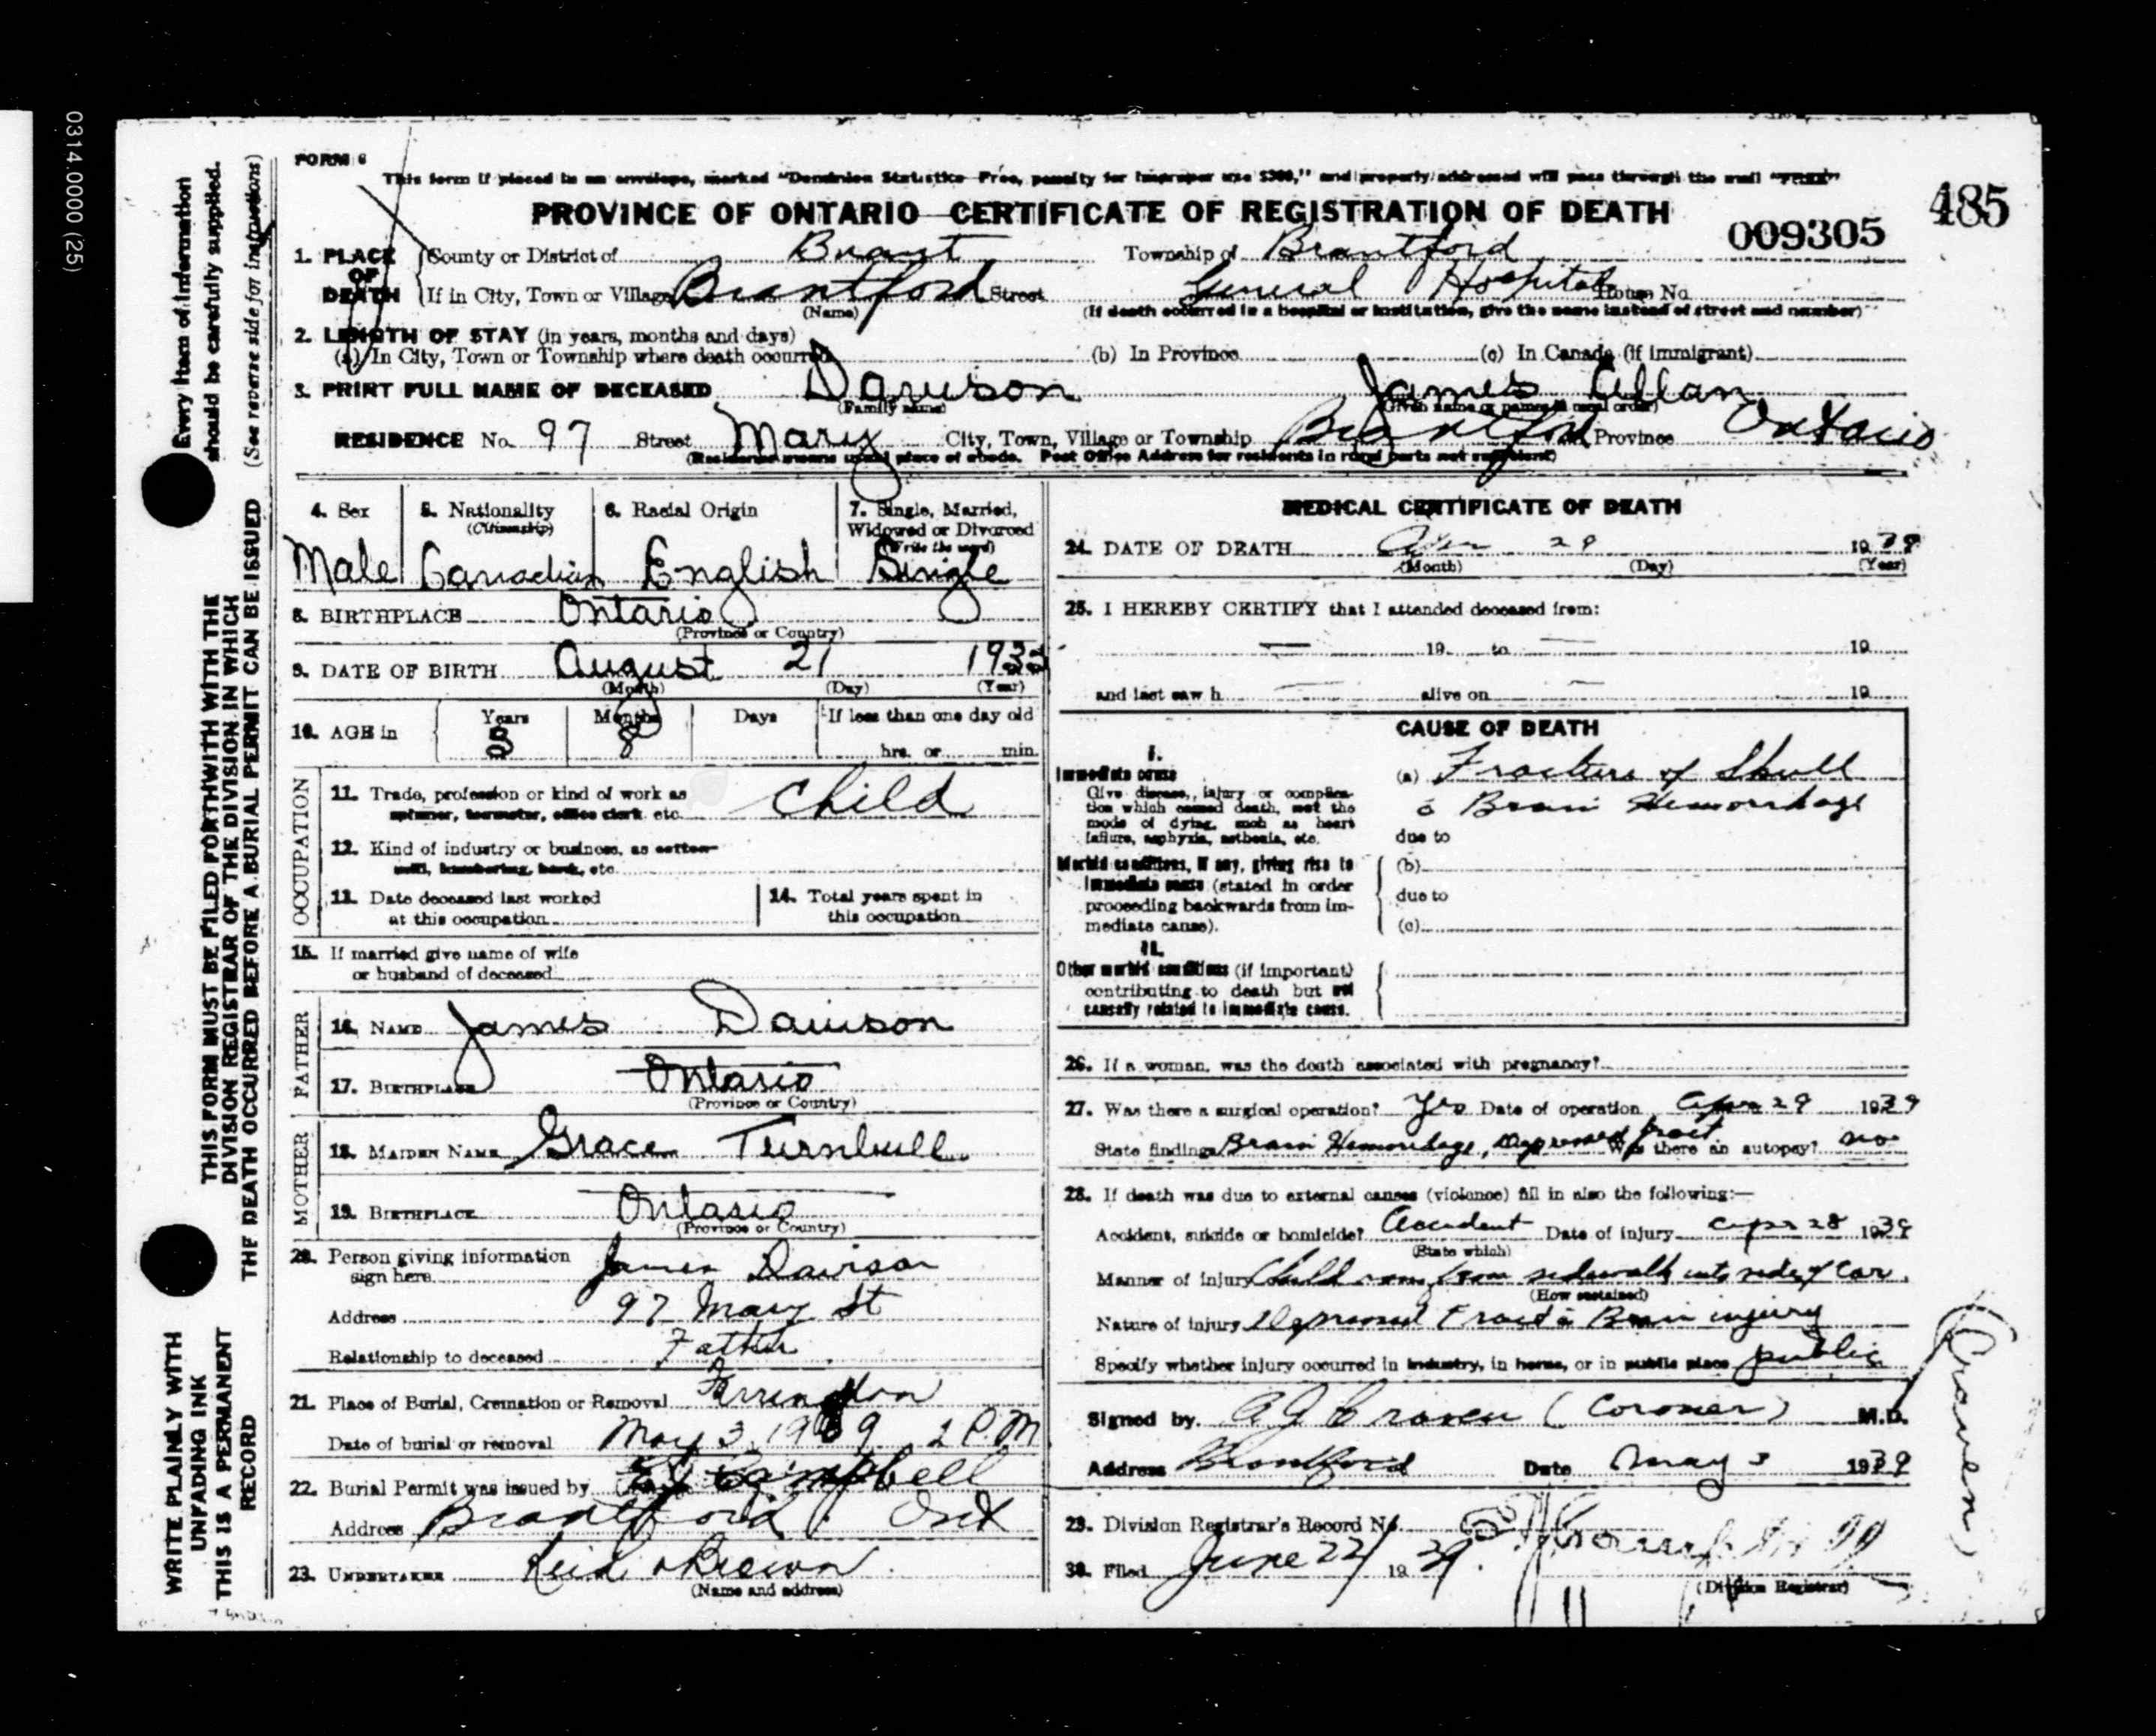 0314.0000 (25)
FORM 6
This form if placed in an envelope, marked "Dominion Statistics—Free, penalty for improper use $300," and properly addressed will pass through the mail "FREE"
PROVINCE OF ONTARIO—CERTIFICATE OF REGISTRATION OF DEATH
485
009305
1. PLACE OF DEATH County or District of Brant Township of Brantford
If in City, Town or Village Brantford Street General Hospital House No.
(Name) (If death occurred in a hospital or institution, give the name instead of street and number)
2. LENGTH OF STAY (in years, months and days)
(a) In City, Town or Township where death occurred (b) In Province (c) In Canada (if immigrant)
3. PRINT FULL NAME OF DECEASED Davison James Allan
(Family name) (Given name or names in usual order)
RESIDENCE No. 97 Street Mary City, Town, Village or Township Brantford Province Ontario
(Residence means usual place of abode. Post Office Address for residents in rural parts not sufficient)
4. Sex 5. Nationality (Citizenship) 6. Racial Origin 7. Single, Married, Widowed or Divorced (Write the word)
Male Canadian English Single
8. BIRTHPLACE Ontario
(Province or Country)
9. DATE OF BIRTH August 21 193
(Month) (Day) (Year)
10. AGE in Years Months Days If less than one day old
8 hrs. or min.
OCCUPATION
11. Trade, profession or kind of work as spinner, teamster, office clerk, etc. Child
12. Kind of industry or business, as cotton mill, lumbering, bank, etc.
13. Date deceased last worked at this occupation
14. Total years spent in this occupation
15. If married give name of wife or husband of deceased
FATHER
16. NAME James Davison
17. BIRTHPLACE Ontario
(Province or Country)
MOTHER
18. MAIDEN NAME Grace Turnbull
19. BIRTHPLACE Ontario
(Province or Country)
20. Person giving information sign here James Davison
Address 97 Mary St
Relationship to deceased Father
21. Place of Burial, Cremation or Removal Farringdon
Date of burial or removal May 3 1939 2 P.M
22. Burial Permit was issued by Campbell
Address Brantford Ont
23. UNDERTAKER Reid & Brown
(Name and address)
MEDICAL CERTIFICATE OF DEATH
24. DATE OF DEATH Apr 29 1939
(Month) (Day) (Year)
25. I HEREBY CERTIFY that I attended deceased from:
19 to 19
and last saw h alive on 19
CAUSE OF DEATH
I.
Immediate cause
Give disease, injury or complication which caused death, not the mode of dying, such as heart failure, asphyxia, asthenia, etc.
(a) Fracture of Skull
c̄ Brain Hemorrhage
due to
Morbid conditions, if any, giving rise to immediate cause (stated in order proceeding backwards from immediate cause).
(b)
due to
(c)
II.
Other morbid conditions (if important) contributing to death but not causally related to immediate cause.
26. If a woman, was the death associated with pregnancy?
27. Was there a surgical operation? Yes Date of operation Apr 29 1939
State findings Brain Hemorrhage, Depressed fract Was there an autopsy? no
28. If death was due to external causes (violence) fill in also the following:—
Accident, suicide or homicide? Accident Date of injury Apr 28 1939
(State which)
Manner of injury Child ran from sidewalk into side of car.
(How sustained)
Nature of injury Depressed Fract c̄ Brain injury
Specify whether injury occurred in industry, in home, or in public place public
Signed by A J Craven (Coroner) M.D.
Address Brantford Date May 3 1939
29. Division Registrar's Record No.
30. Filed June 22 1939
(Division Registrar)
(Craven)
Every item of information should be carefully supplied.
(See reverse side for instructions)
THIS FORM MUST BE FILED FORTHWITH WITH THE DIVISION REGISTRAR OF THE DIVISION IN WHICH THE DEATH OCCURRED BEFORE A BURIAL PERMIT CAN BE ISSUED
WRITE PLAINLY WITH UNFADING INK
THIS IS A PERMANENT RECORD